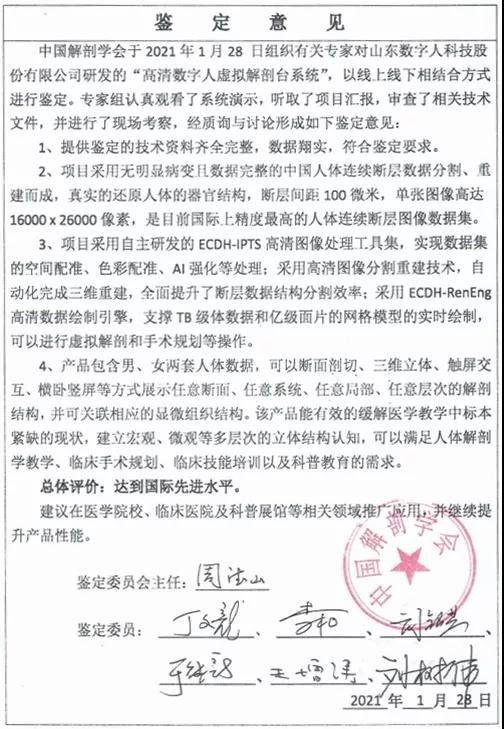 鉴定意见
中国解剖学会于2021年1月28 日组织有关专家对山东数字人科技股
份有限公司研发的“高清数字人虚拟解剖台系统”，以线上线下相结合方式
进行鉴定。专家组认真观看了系统演示，听取了项目汇报，审查了相关技术
文件，并进行了现场考察，经质询与讨论形成如下鉴定意见：
1、提供鉴定的技术资料齐全完整，数据翔实，符合鉴定要求。
2、项目采用无明显病变且数据完整的中国人体连续断层数据分割、重
建而成，真实的还原人体的器官结构，断层间距100微米，单张图像高达
16000 x 26000像素，是目前国际上精度最高的人体连续断层图像数据集。
3、项目采用自主研发的ECDH-IPTS高清图像处理工具集，实现数据集
的空间配准、色彩配准、AI强化等处理；采用高清图像分割重建技术，自
动化完成三维重建，全面提升了断层数据结构分割效率；采用ECDH-RenEng
高清数据绘制引擎，支撑TB级体数据和亿级面片的网格模型的实时绘制，
可以进行虚拟解剖和手术规划等操作。
4、产品包含男、女两套人体数据，可以断面剖切、三维立体、触屏交
互、横卧竖屏等方式展示任意断面、任意系统、任意局部、任意层次的解剖
结构，并可关联相应的显微组织结构。该产品能有效的缓解医学教学中标本
紧缺的现状，建立宏观、微观等多层次的立体结构认知，可以满足人体解剖
学教学、临床手术规划、临床技能培训以及科普教育的需求。
总体评价：达到国际先进水平。
建议在医学院校、临床医院及科普展馆等相关领域推广应用，并继续提
升产品性能。
中国解剖学会
鉴定委员会主任：
鉴定委员：
2021年1月28日